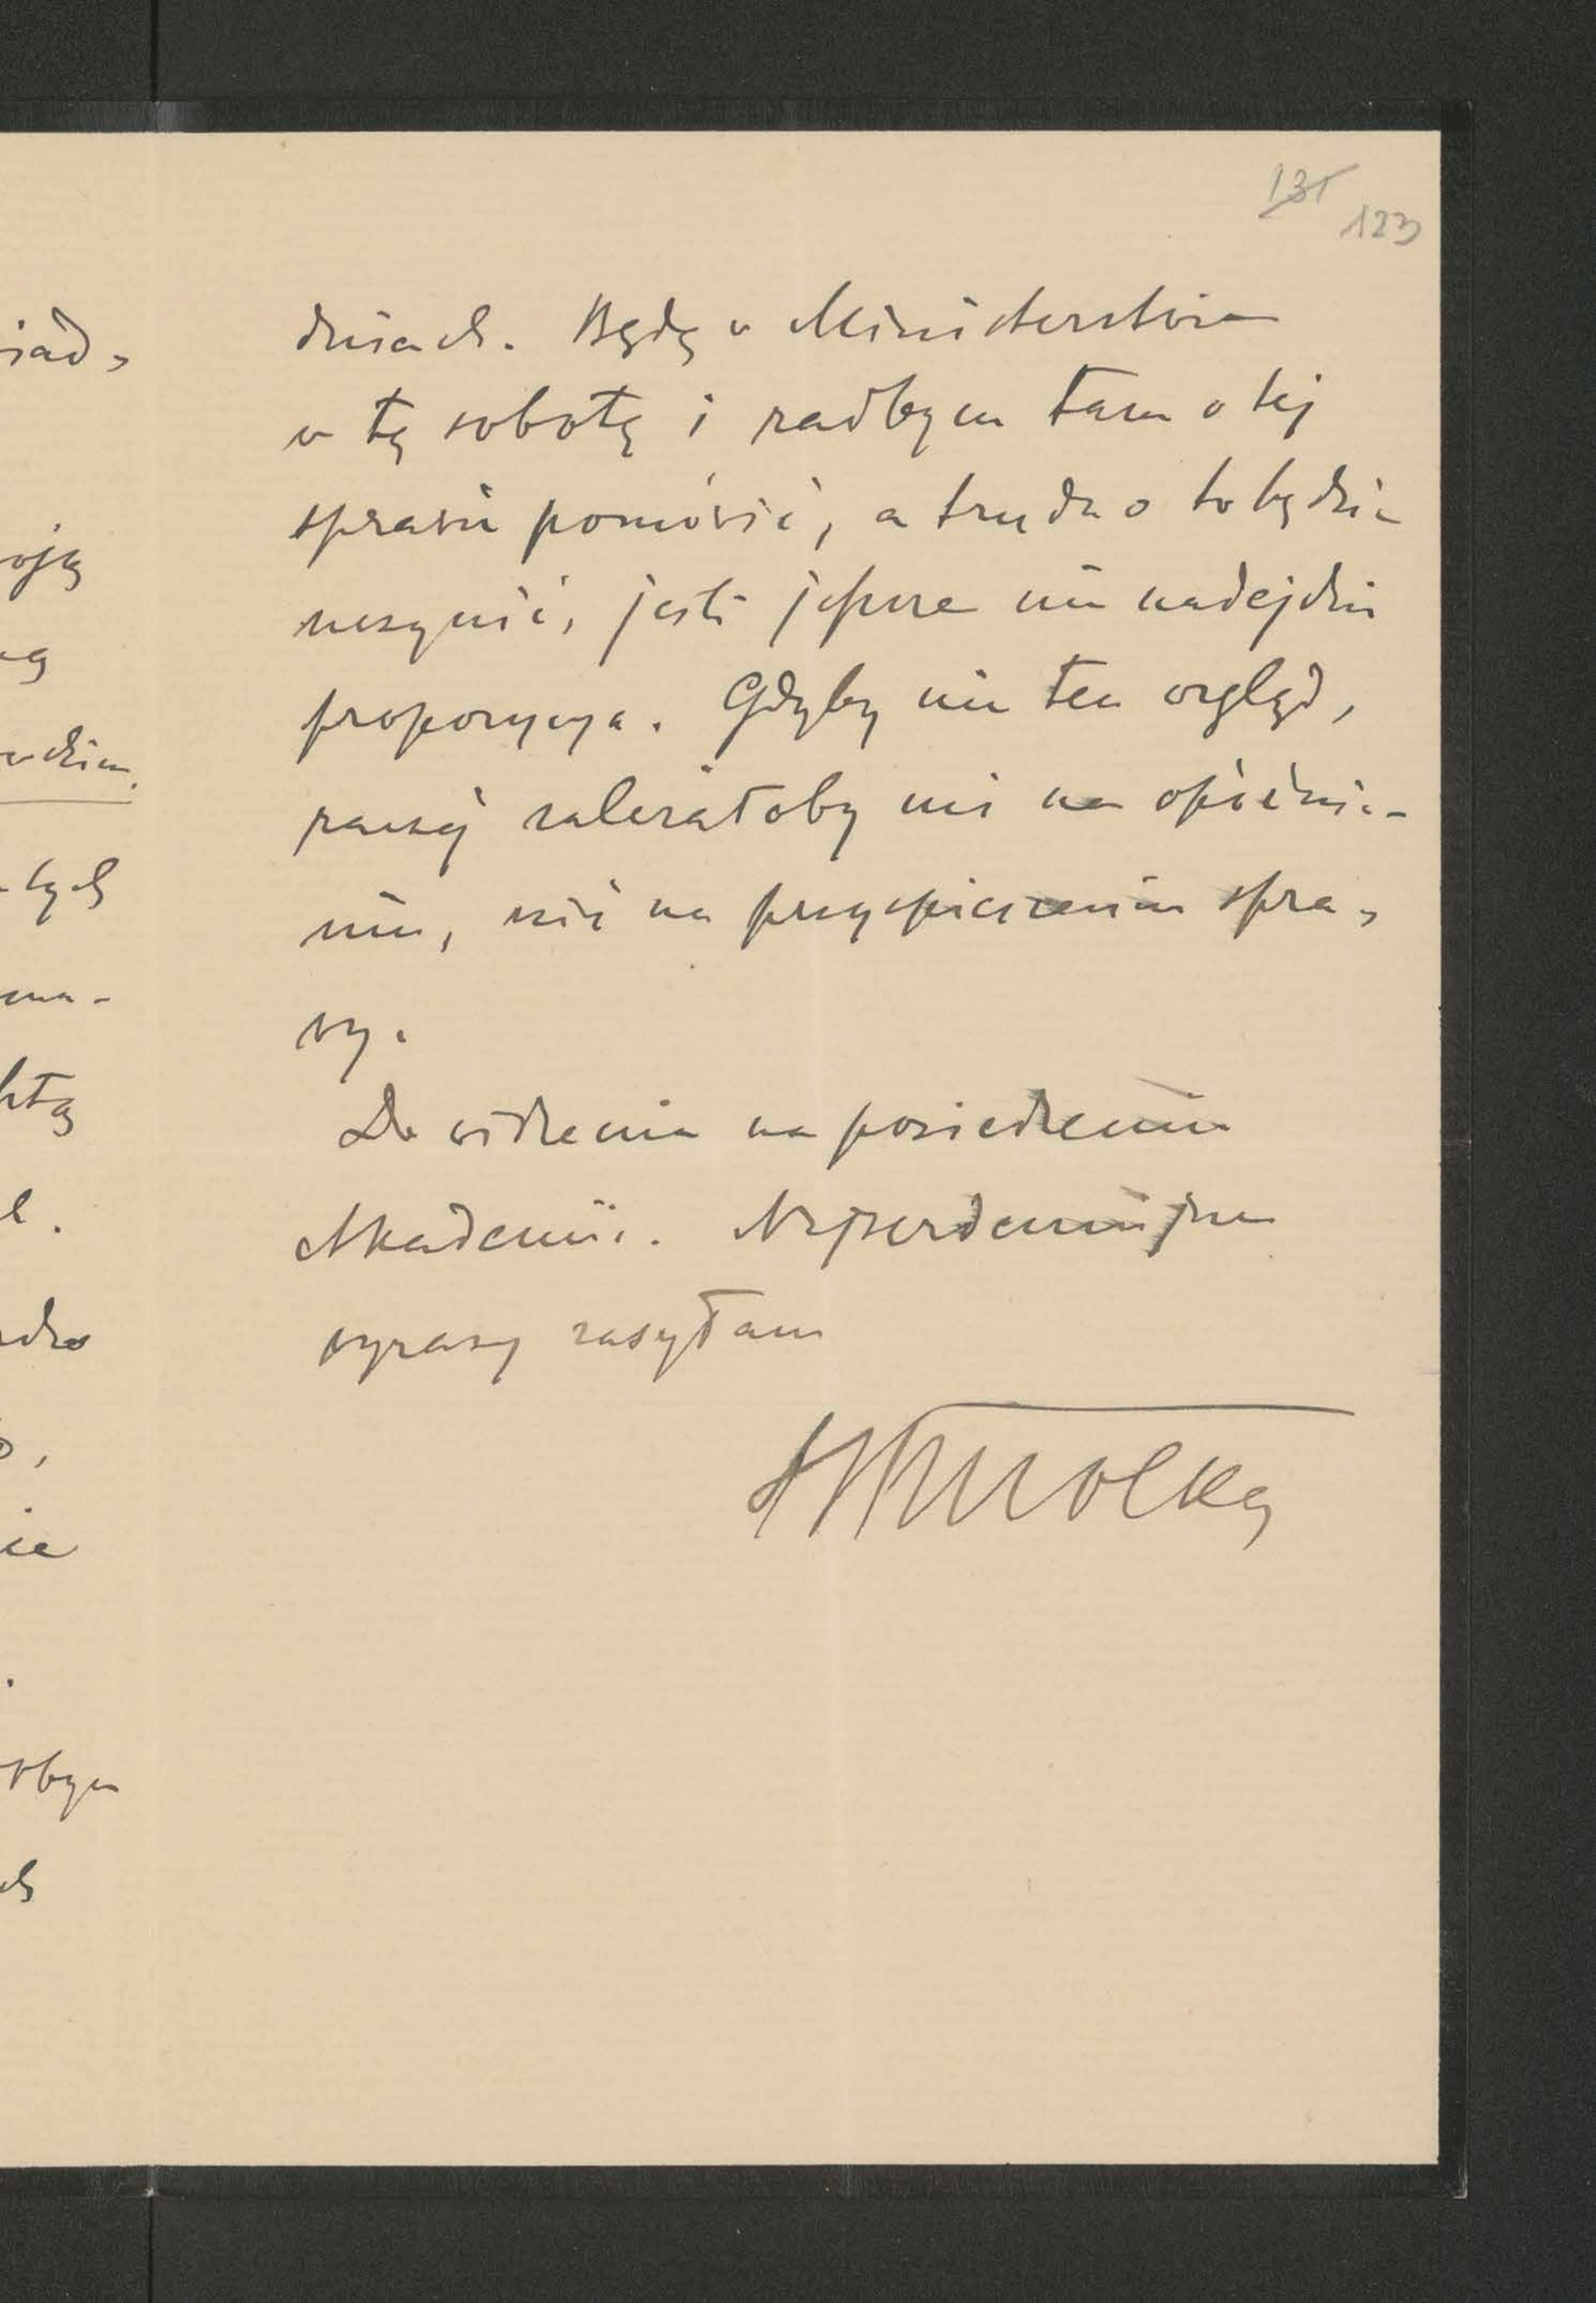 131
123
dniach. Będę w Ministerstwie
w tę sobotę i radbym tam o tej
sprawie pomówić, a trudno to będzie
uczynić, jeśli jeszcze nie nadejdzie
propozycya. Gdyby nie ten wzgląd,
raczej zależałoby mi na opóźnie-
niu, niż na przyspieszeniu spra-
wy.
Do widzenia na posiedzeniu
Akademii. Najserdeczniejsze
wyrazy zasyłam
SSmolka
iad,
oją
dzien.
tych
ma-
.
ie
.
bym
ch